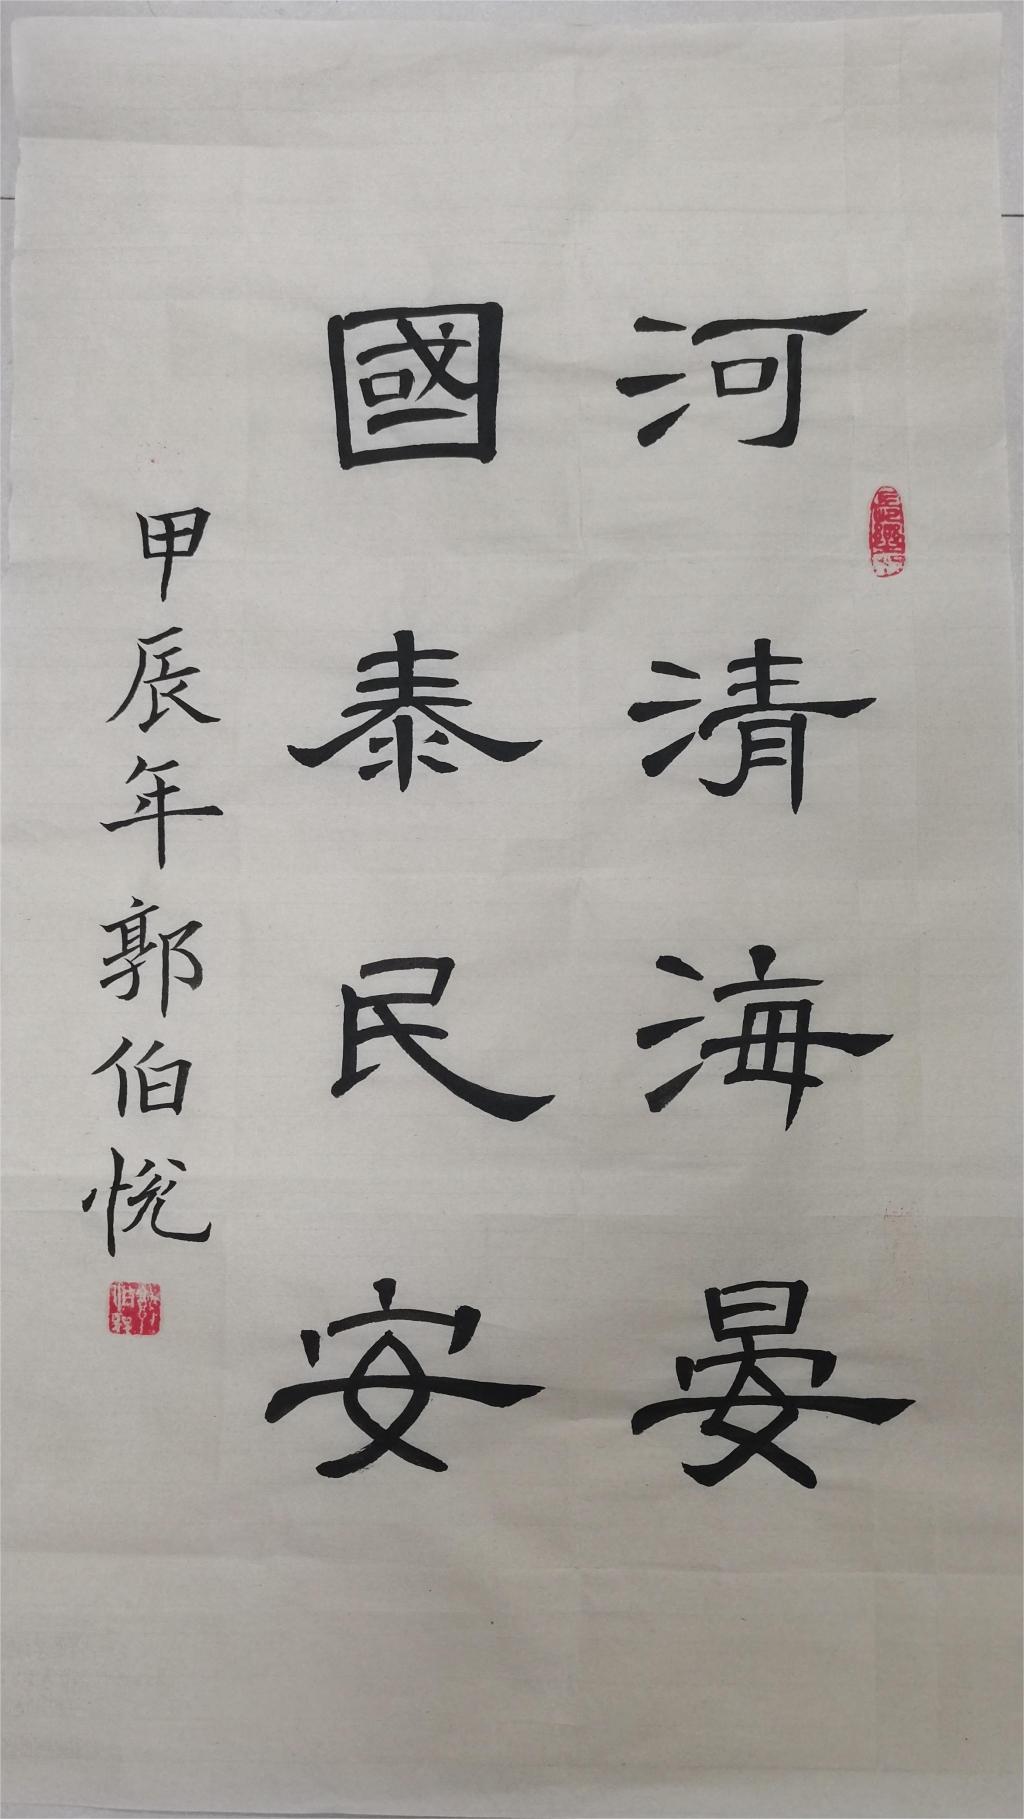 河清海晏
國泰民安
甲辰年郭伯悦